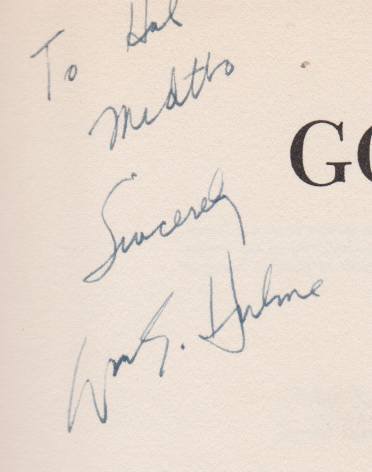 To Hal
Medtbo
Sincerely
Wm E. Hulme
GO